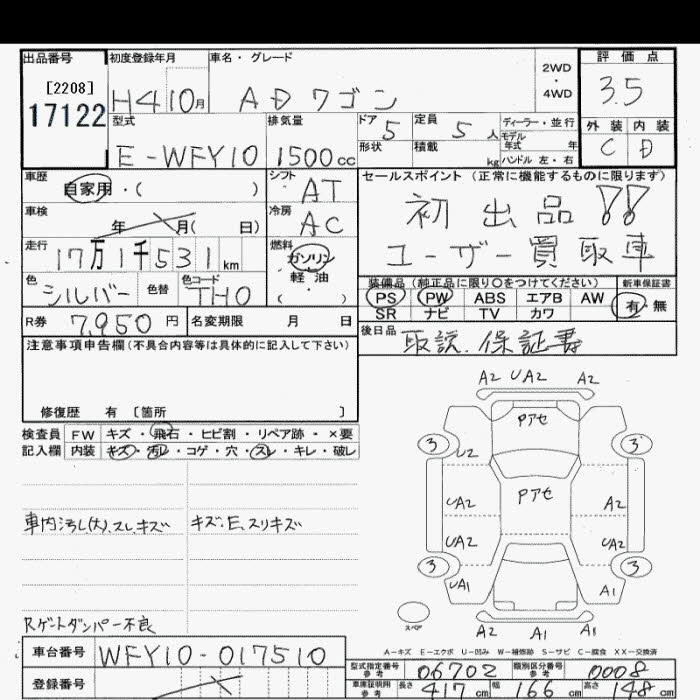 出品番号
[2208]
17122
初度登録年月
H4 10月
車名・グレード
AD ワゴン
2WD
・
4WD
評価点
3.5
外装 内装
C D
型式
E-WFY10
排気量
1500cc
ドア 5
形状
定員 5 人
積載 kg
ディーラー・並行
モデル年式 年
ハンドル 左・右
車歴
自家用・( )
車検
年 月( 日)
走行
17万1千531km
色
シルバー 色替
色コード
TH0
シフト
AT
冷房
AC
燃料
ガソリン
軽油
( ・ )
セールスポイント (正常に機能するものに限ります)
初出品!!
ユーザー買取車
装備品 (純正品に限り○をつけてください)
PS PW ABS エアB AW
SR ナビ TV カワ
新車保証書
有・無
R券 7,950 円
名変期限 月 日
後日品
取説.保証書
注意事項申告欄(不具合内容等は具体的に記入して下さい)
修復歴 有 〔箇所 〕
検査員記入欄
FW キズ・飛石・ヒビ割・リペア跡・×要
内装 キズ・汚レ・コゲ・穴・スレ・キレ・破レ
車内汚レ(大).スレ.キズ
キズ.E.スリキズ
Rゲートダンパー不良
A2 UA2 A2
Pアセ
3 3
U2
Pアセ
UA2 A2
UA2 UA2
3 3
UA1 A1
スペア
A2 A1 A1
A-キズ E-エクボ U-凹み W-補修跡 S-サビ C-腐食 XX-交換済
車台番号 WFY10-017510
登録番号
型式指定番号 参考 06702
類別区分番号 参考 0008
車庫証明用 参考 長さ 417cm 幅 166cm 高さ 148cm